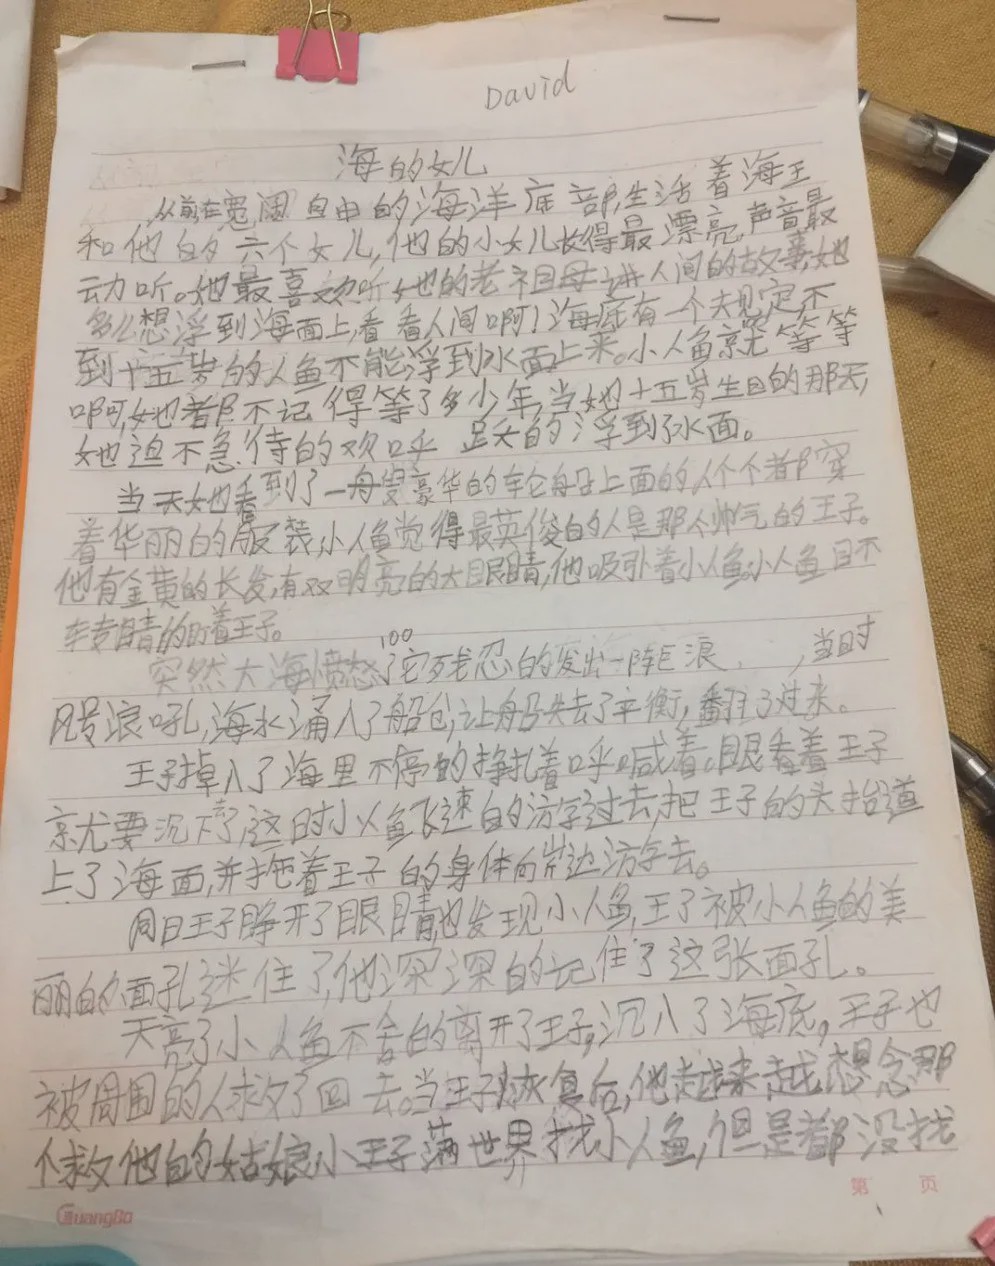 David
海的女儿
从前在宽阔自由的海洋底部,生活着海王
和他的六个女儿,他的小女儿长得最漂亮,声音最
动听。她最喜欢听她的老祖母讲人间的故事,她
多么想浮到海面上,看看人间啊!海底有一个规定不
到十五岁的人鱼不能浮到水面上来。小人鱼就等等
啊,她都不记得等了多少年,当她十五岁生日的那天,
她迫不急待的欢呼跃的浮到了水面。
当天她看到了一艘豪华的轮船上面的人个个都穿
着华丽的服装,小人鱼觉得最英俊的人是那个帅气的王子。
他有金黄的长发,有双明亮的大眼睛,他吸引着小人鱼,小人鱼目不
车专睛的盯着王子。
100
突然大海愤怒了它残忍的发出一阵巨浪,当时
风浪吼,海水涌入了船仓,让船失去了平衡,翻了过来。
王子掉入了海里不停的挣扎着呼喊着,眼看着王子
就要沉下了,这时小人鱼飞速的游过去,把王子的头抬道
上了海面,并拖着王子的身体向岸边游去。
同日王子睁开了眼睛,他发现小人鱼,王子被小人鱼的美
丽的面孔迷住了,他深深的记住了这张面孔。
天亮了小人鱼不舍的离开了王子,沉入了海底,王子也
被周围的人救了回去。当王子恢复后,他越来越想念那
个救他的姑娘,小王子满世界找小人鱼,但是都没找
第 页
GuangBo